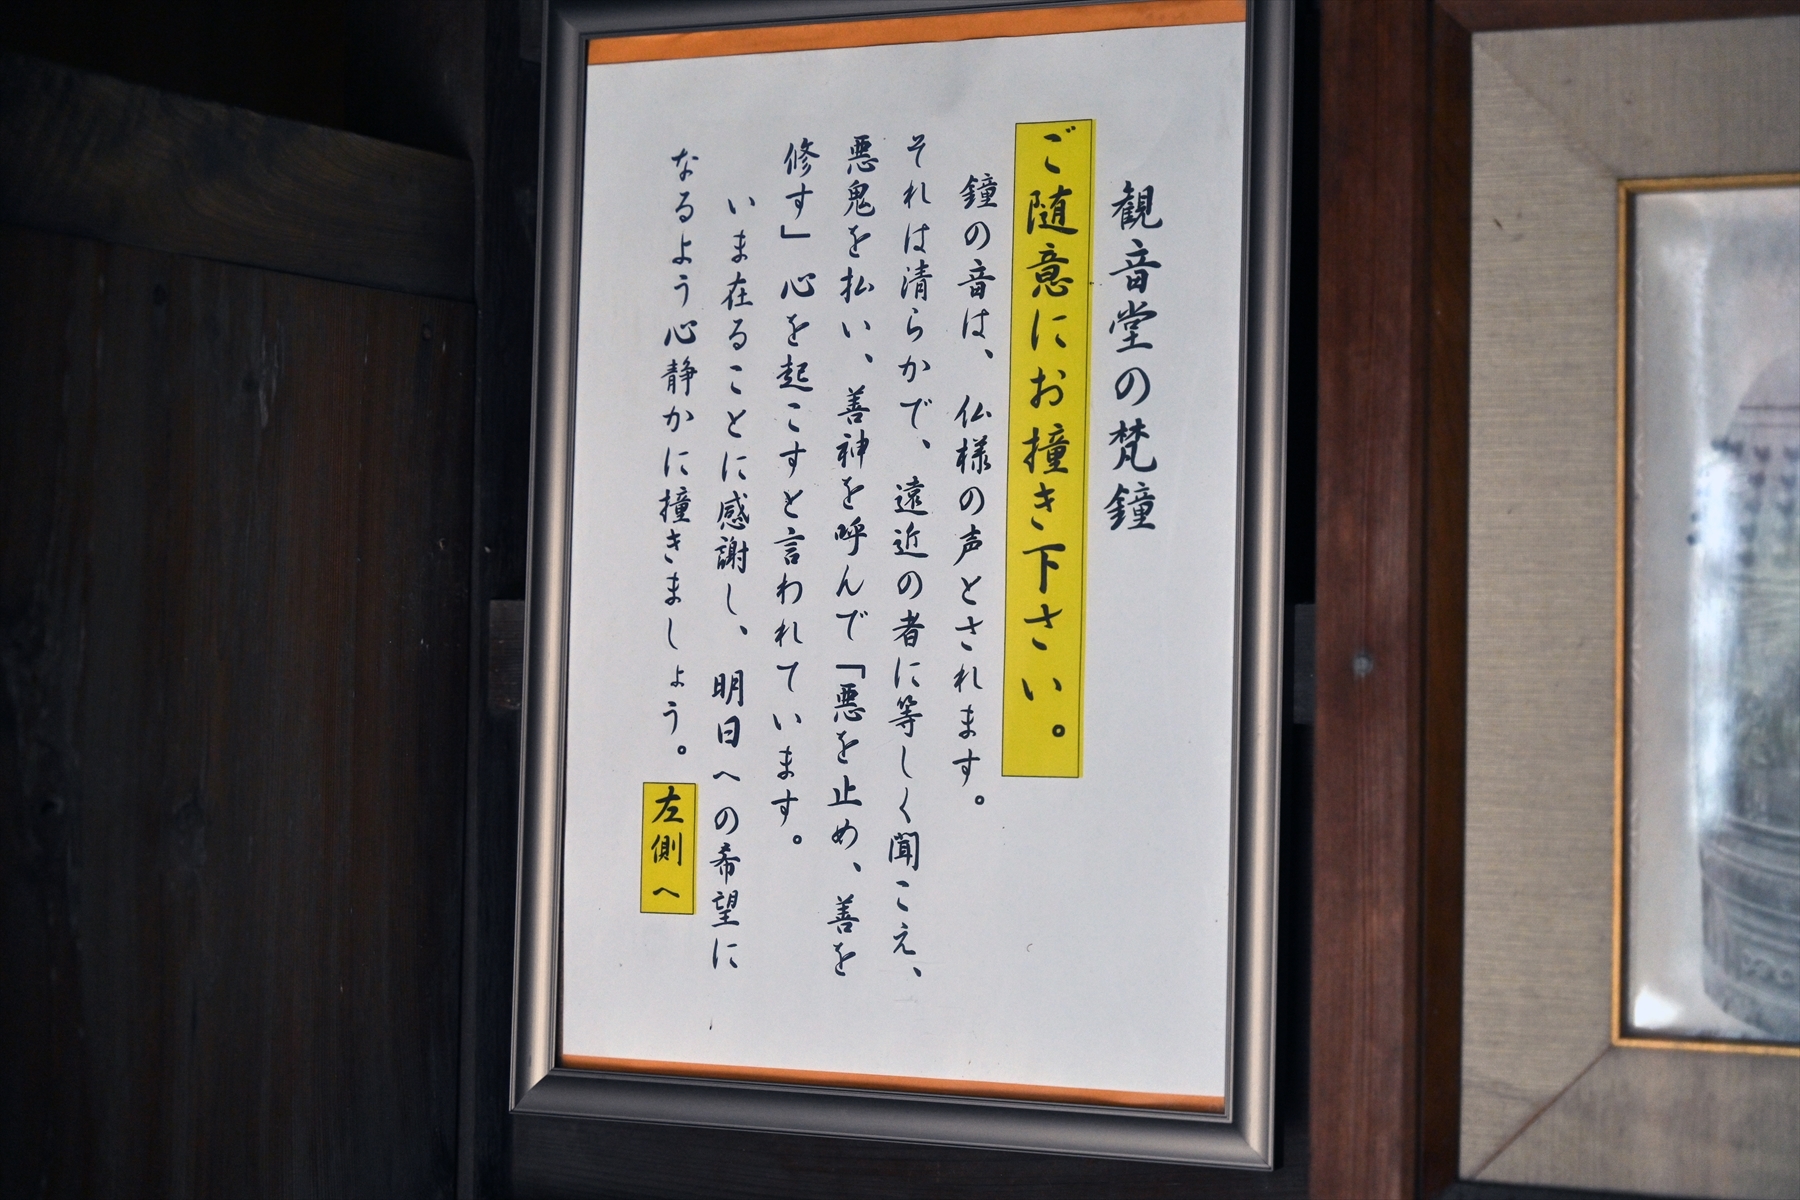 観音堂の梵鐘
ご随意にお撞き下さい。
鐘の音は、仏様の声とされます。
それは清らかで、遠近の者に等しく聞こえ、
悪鬼を払い、善神を呼んで「悪を止め、善を
修す」心を起こすと言われています。
いま在ることに感謝し、明日への希望に
なるよう心静かに撞きましょう。
左側へ